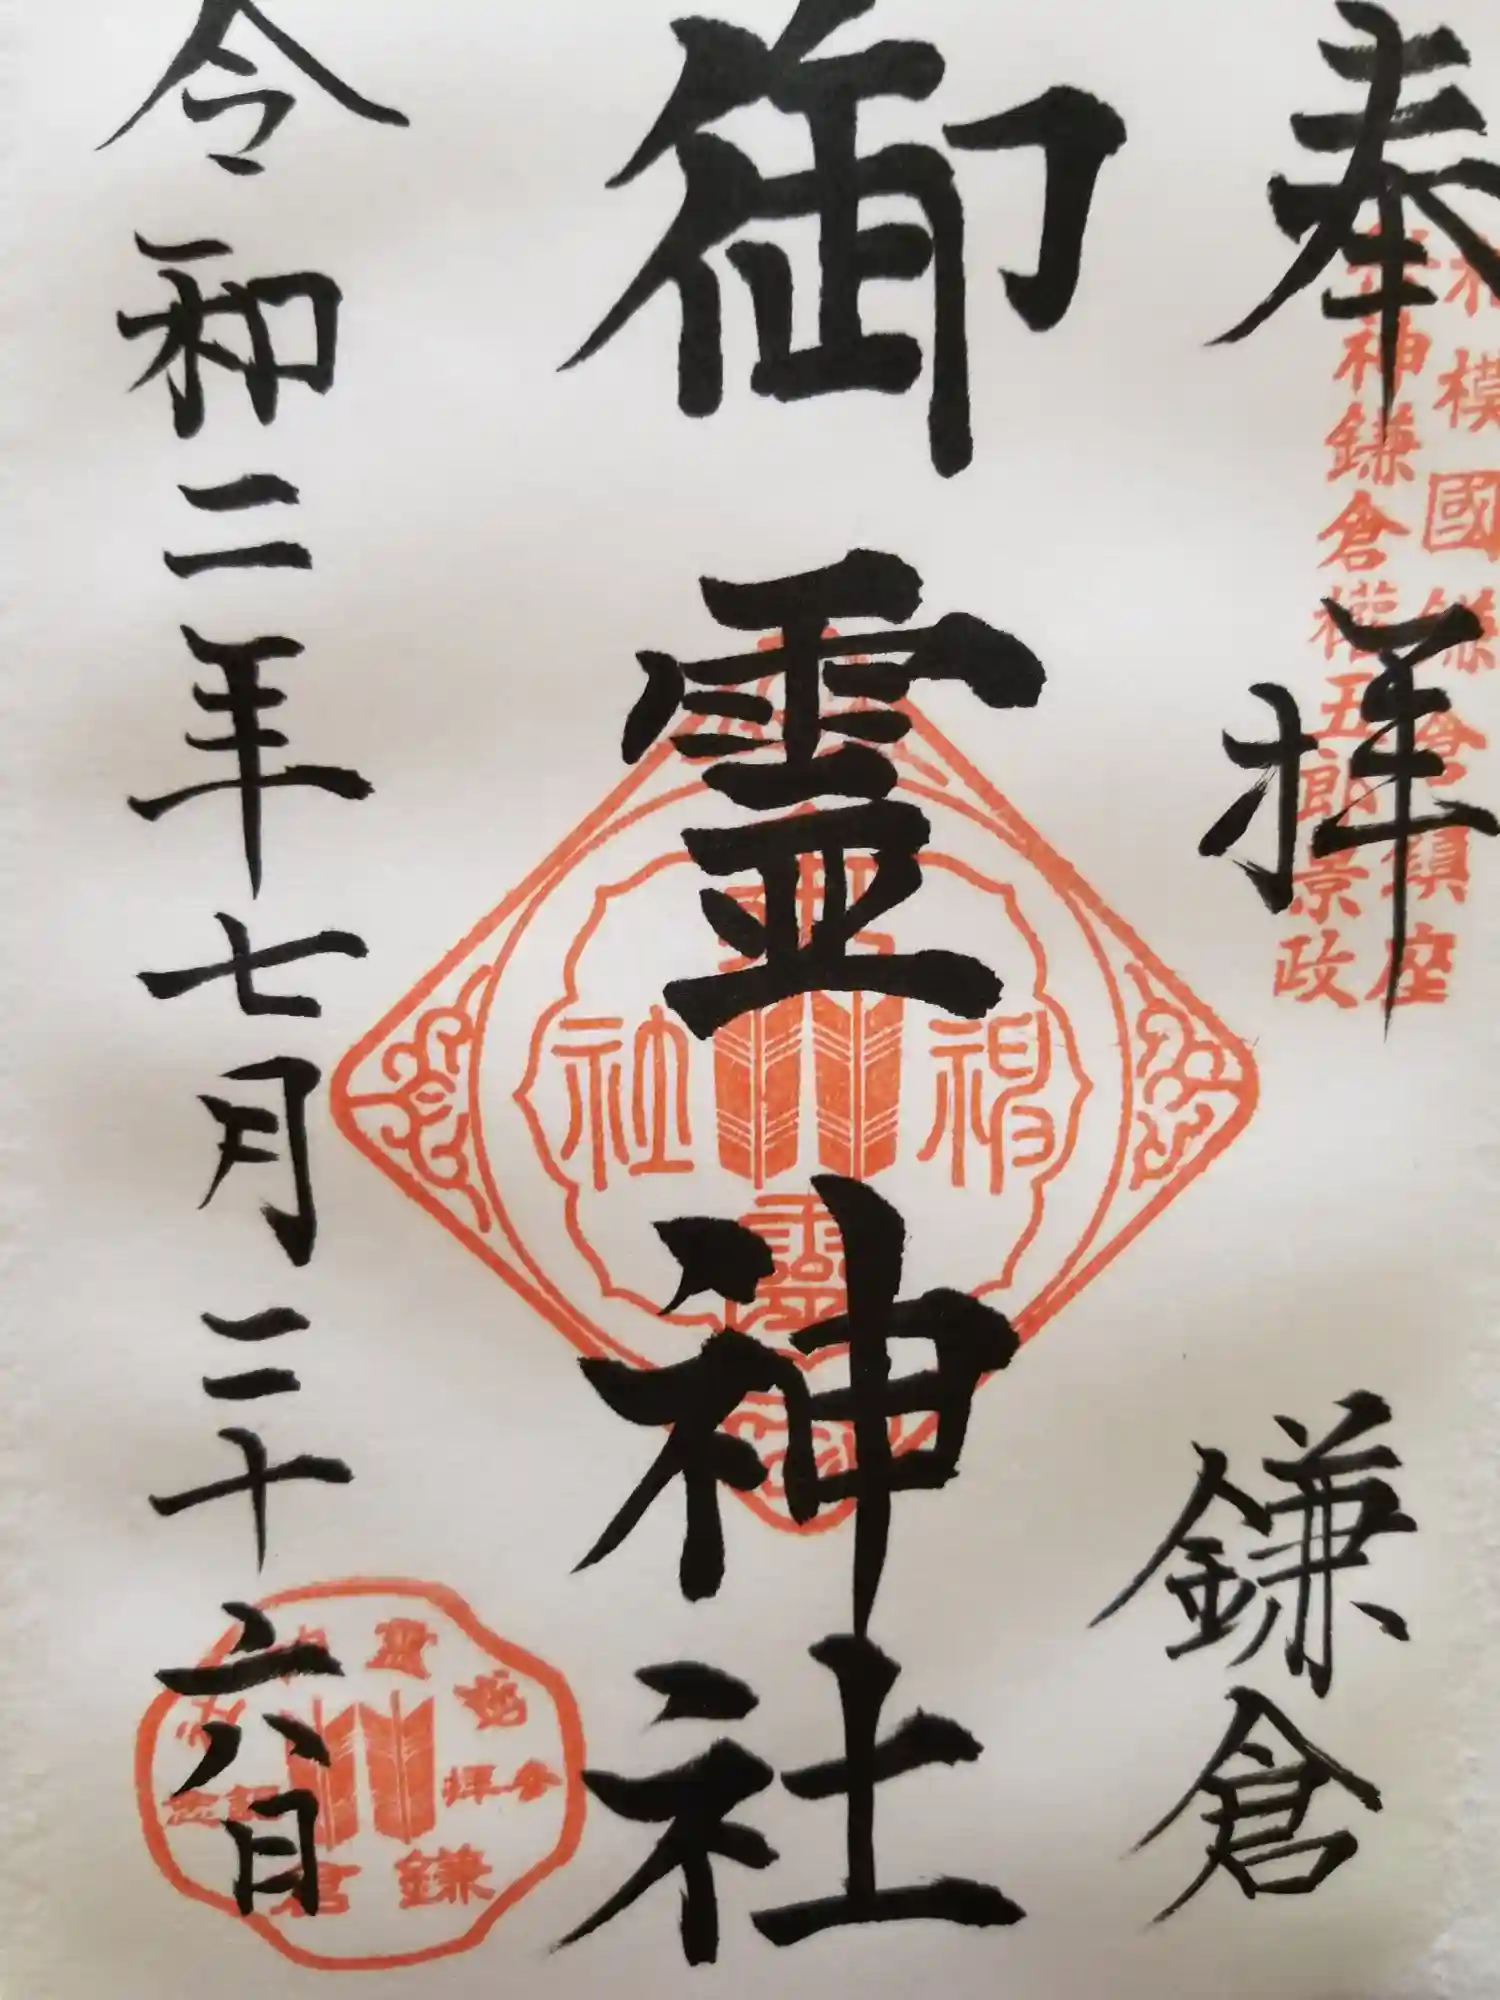 奉拝 鎌倉
相模國鎌倉鎮座
祭神鎌倉權五郎景政
御霊神社
御靈神社
令和二年七月二十六日
鎌倉
参拝